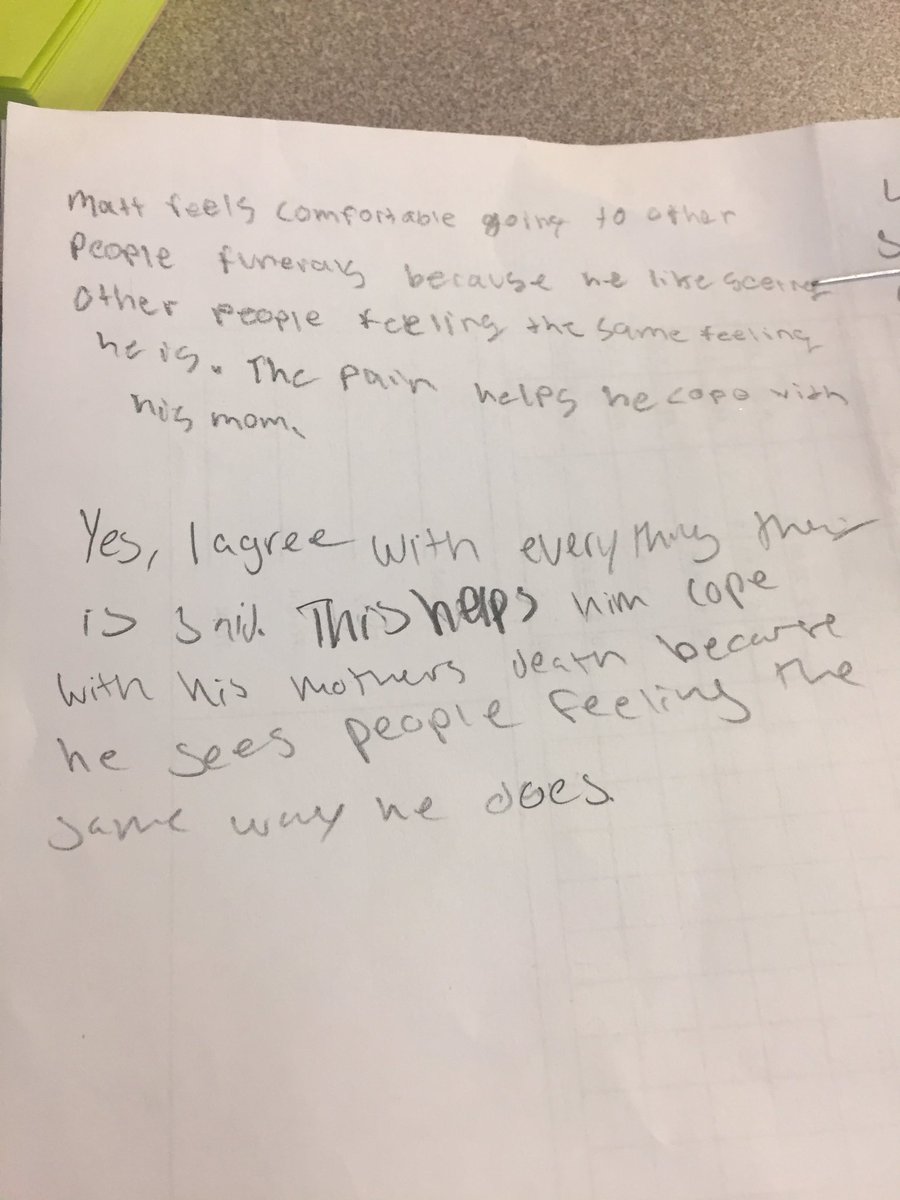 Matt feels comfortable going to other
People funerals because he like seeing
other people feeling the same feeling
he is. The pain helps he cope with
his mom.
Yes, I agree with everything
is said. This helps him cope
with his mothers death because
he sees people feeling the
same way he does.